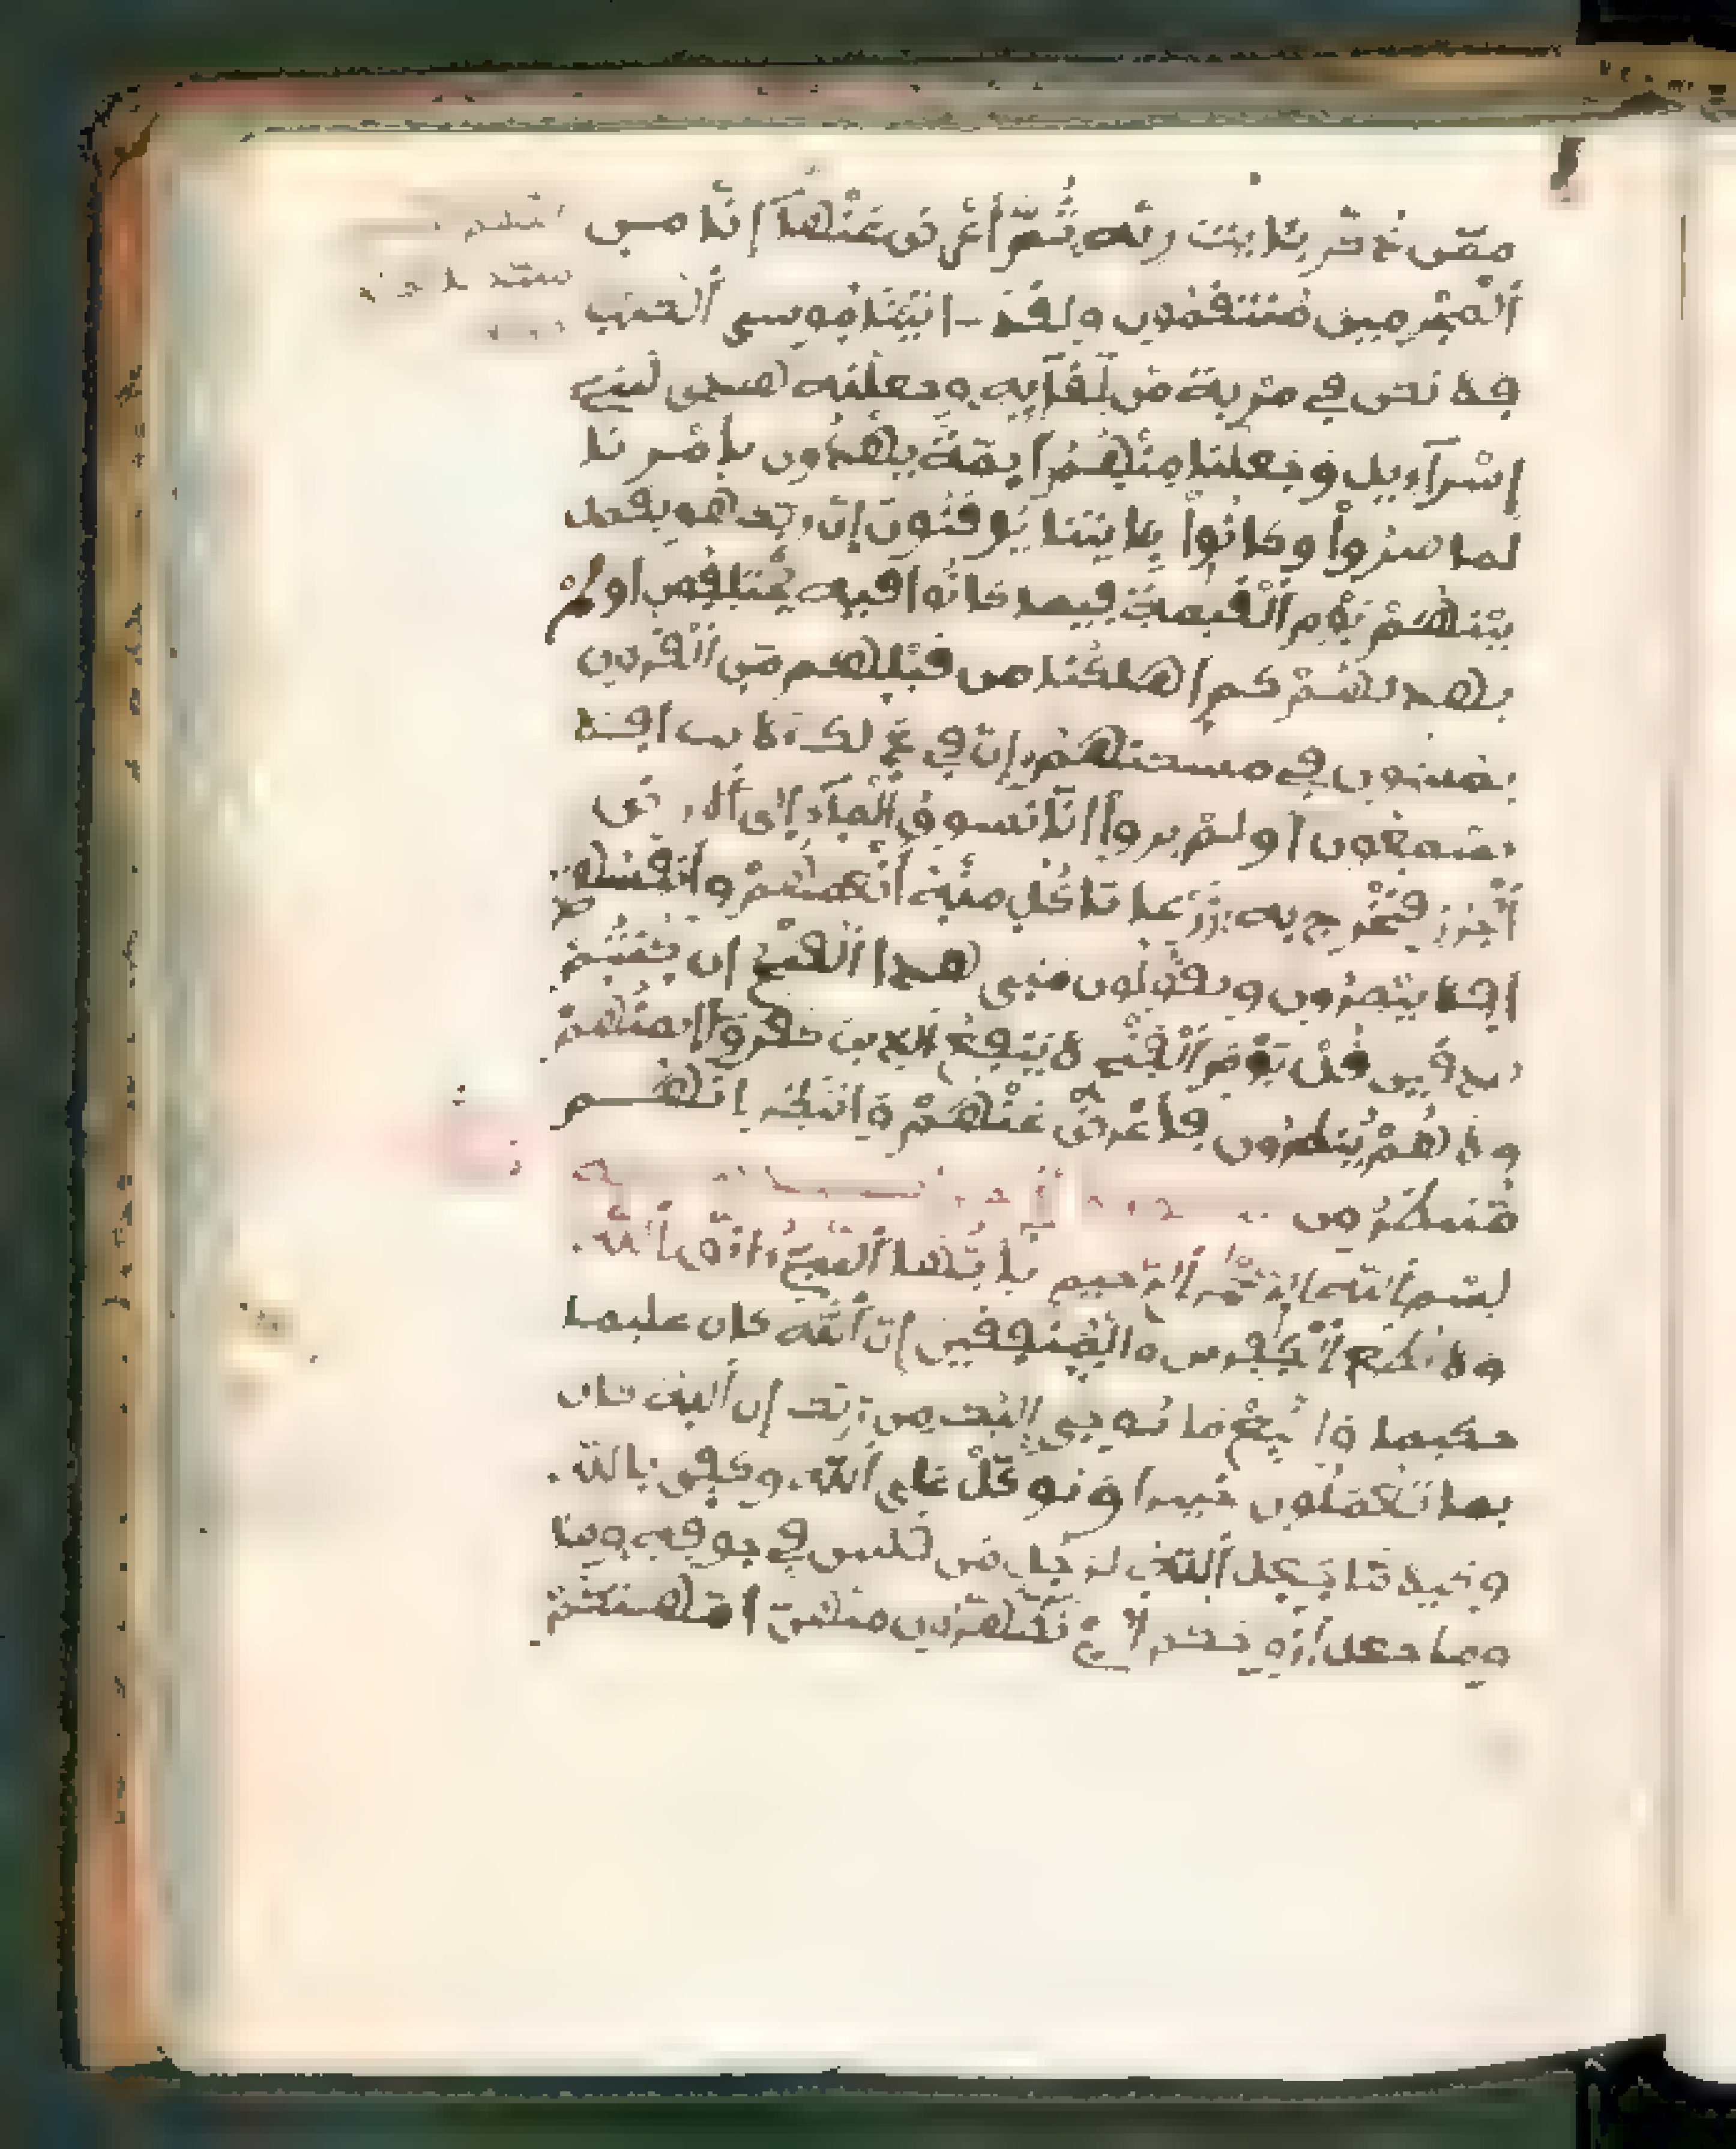 ممن ذكر بايت ربه ثم أعرض عنها إنا من
ألمجرمين منتقمون ولقد اتينا موسى ألكتب
فلا تكن في مرية من لقآيه وجعلنه هدى لبني
إسرآءيل وجعلنا منهم أيمة يهدون بأمرنا
لما صبروا وكانوا بايتنا يوقنون إن ربك هو يفصل
بينهم يوم ألقيمة فيما كانوا فيه يختلفون أولم
يهد لهم كم أهلكنا من قبلهم من ألقرون
يمشون في مسكنهم إن في ذلك لايت أفلا
يسمعون أولم يروا أنا نسوق ألمآء إلى ألارض
ألجرز فنخرج به زرعا تاكل منه أنعمهم وأنفسهم
أفلا يبصرون ويقولون متى هذا ألفتح إن كنتم
صدقين قل يوم ألفتح لا ينفع ألذين كفروا إيمنهم
ولا هم ينظرون فأعرض عنهم وانتظر إنهم
منتظرون
بسم ألله ألرحمن ألرحيم يأيها ألنبيء اتق ألله
ولا تطع ألكفرين والمنفقين إن ألله كان عليما
حكيما واتبع ما يوحى إليك من ربك إن ألله كان
بما تعملون خبيرا وتوكل على ألله وكفى بالله
وكيلا ما جعل ألله لرجل من قلبين في جوفه وما
وما جعل أزوجكم ألء تظهرون منهن أمهتكم